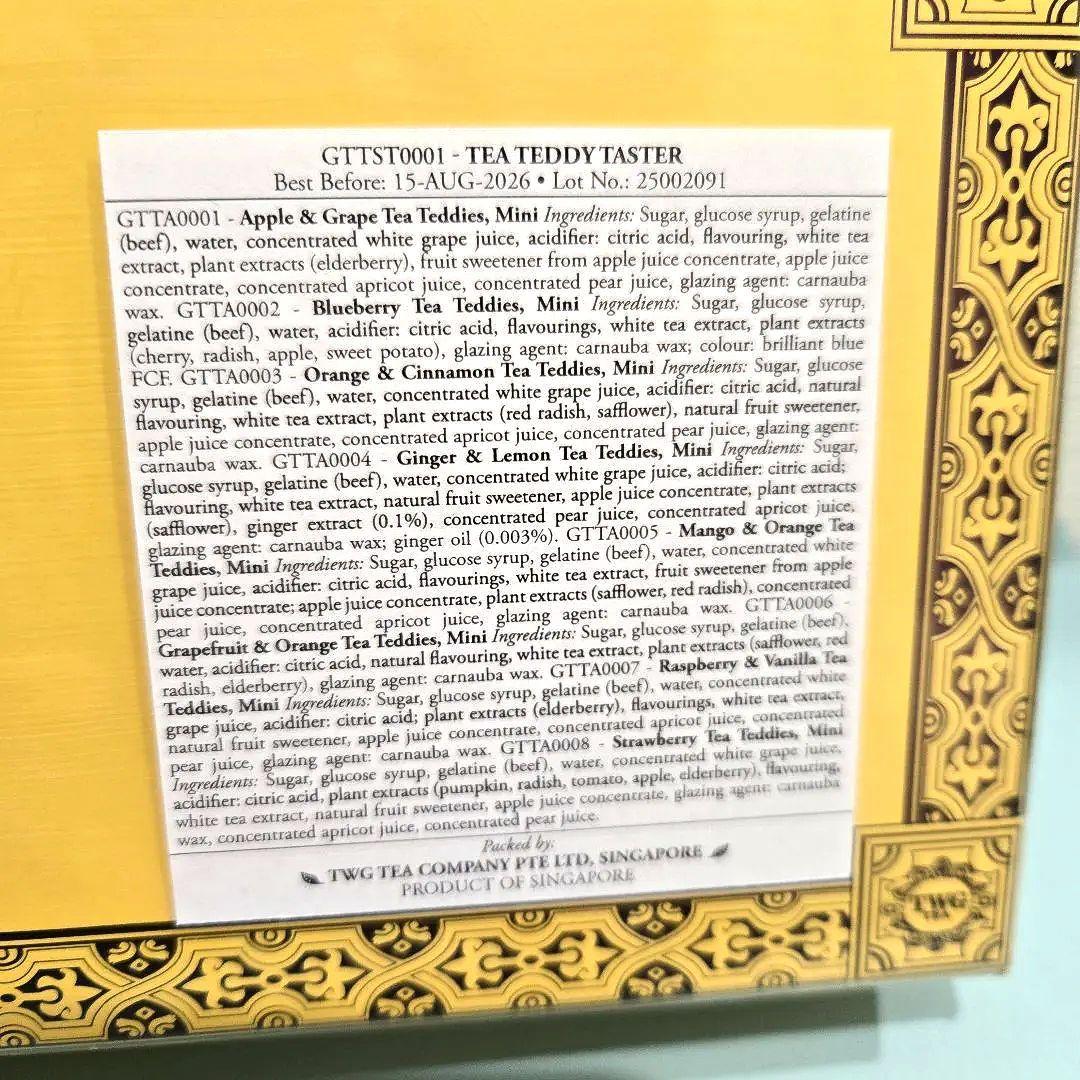 GTTST0001 - TEA TEDDY TASTER
Best Before: 15-AUG-2026 • Lot No.: 25002091
GTTA0001 - Apple & Grape Tea Teddies, Mini Ingredients: Sugar, glucose syrup, gelatine
(beef), water, concentrated white grape juice, acidifier: citric acid, flavouring, white tea
extract, plant extracts (elderberry), fruit sweetener from apple juice concentrate, apple juice
concentrate, concentrated apricot juice, concentrated pear juice, glazing agent: carnauba
wax. GTTA0002 - Blueberry Tea Teddies, Mini Ingredients: Sugar, glucose syrup,
gelatine (beef), water, acidifier: citric acid, flavourings, white tea extract, plant extracts
(cherry, radish, apple, sweet potato), glazing agent: carnauba wax; colour: brilliant blue
FCF. GTTA0003 - Orange & Cinnamon Tea Teddies, Mini Ingredients: Sugar, glucose
syrup, gelatine (beef), water, concentrated white grape juice, acidifier: citric acid, natural
flavouring, white tea extract, plant extracts (red radish, safflower), natural fruit sweetener,
apple juice concentrate, concentrated apricot juice, concentrated pear juice, glazing agent:
carnauba wax. GTTA0004 - Ginger & Lemon Tea Teddies, Mini Ingredients: Sugar,
glucose syrup, gelatine (beef), water, concentrated white grape juice, acidifier: citric acid;
flavouring, white tea extract, natural fruit sweetener, apple juice concentrate, plant extracts
(safflower), ginger extract (0.1%), concentrated pear juice, concentrated apricot juice,
glazing agent: carnauba wax; ginger oil (0.003%). GTTA0005 - Mango & Orange Tea
Teddies, Mini Ingredients: Sugar, glucose syrup, gelatine (beef), water, concentrated white
grape juice, acidifier: citric acid, flavourings, white tea extract, fruit sweetener from apple
juice concentrate; apple juice concentrate, plant extracts (safflower, red radish), concentrated
pear juice, concentrated apricot juice, glazing agent: carnauba wax. GTTA0006 -
Grapefruit & Orange Tea Teddies, Mini Ingredients: Sugar, glucose syrup, gelatine (beef),
water, acidifier: citric acid, natural flavouring, white tea extract, plant extracts (safflower, red
radish, elderberry), glazing agent: carnauba wax. GTTA0007 - Raspberry & Vanilla Tea
Teddies, Mini Ingredients: Sugar, glucose syrup, gelatine (beef), water, concentrated white
grape juice, acidifier: citric acid; plant extracts (elderberry), flavourings, white tea extract,
natural fruit sweetener, apple juice concentrate, concentrated apricot juice, concentrated
pear juice, glazing agent: carnauba wax. GTTA0008 - Strawberry Tea Teddies, Mini
Ingredients: Sugar, glucose syrup, gelatine (beef), water, concentrated white grape juice,
acidifier: citric acid, plant extracts (pumpkin, radish, tomato, apple, elderberry), flavouring,
white tea extract, natural fruit sweetener, apple juice concentrate, glazing agent: carnauba
wax, concentrated apricot juice, concentrated pear juice.
Packed by:
TWG TEA COMPANY PTE LTD, SINGAPORE
PRODUCT OF SINGAPORE
TWG
TEA